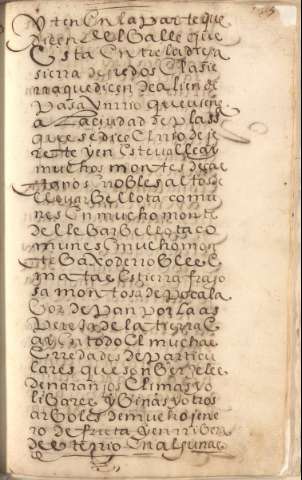 Yten En la parte que
dicen del Valle que
Esta Entre la dicha
sierra de gredos E la sie
rra que dicen de alien de
Pasa Un rio que viene
a La ciudad de plasª
que se dice El rio de je
rete y en Este valle ay
muchos montes de cas
tanos nobles altos de
llevar bellota comu
nes En mucho monte
de lleBar Bellota co
munes E mucho mon
te Baxo de rio BerE E
mata e Es tierra frajo
sa montosa de poca la
Bor de Pan por la as
Pereza de la tierra E
ay En todo El muchas
Eredades de particu
lares que son Berxeles
de naranjos E limas y o
liBares y Binas y otros
arBoles de mucho jene
ro de fruta y en riBera
de este rio En algunas